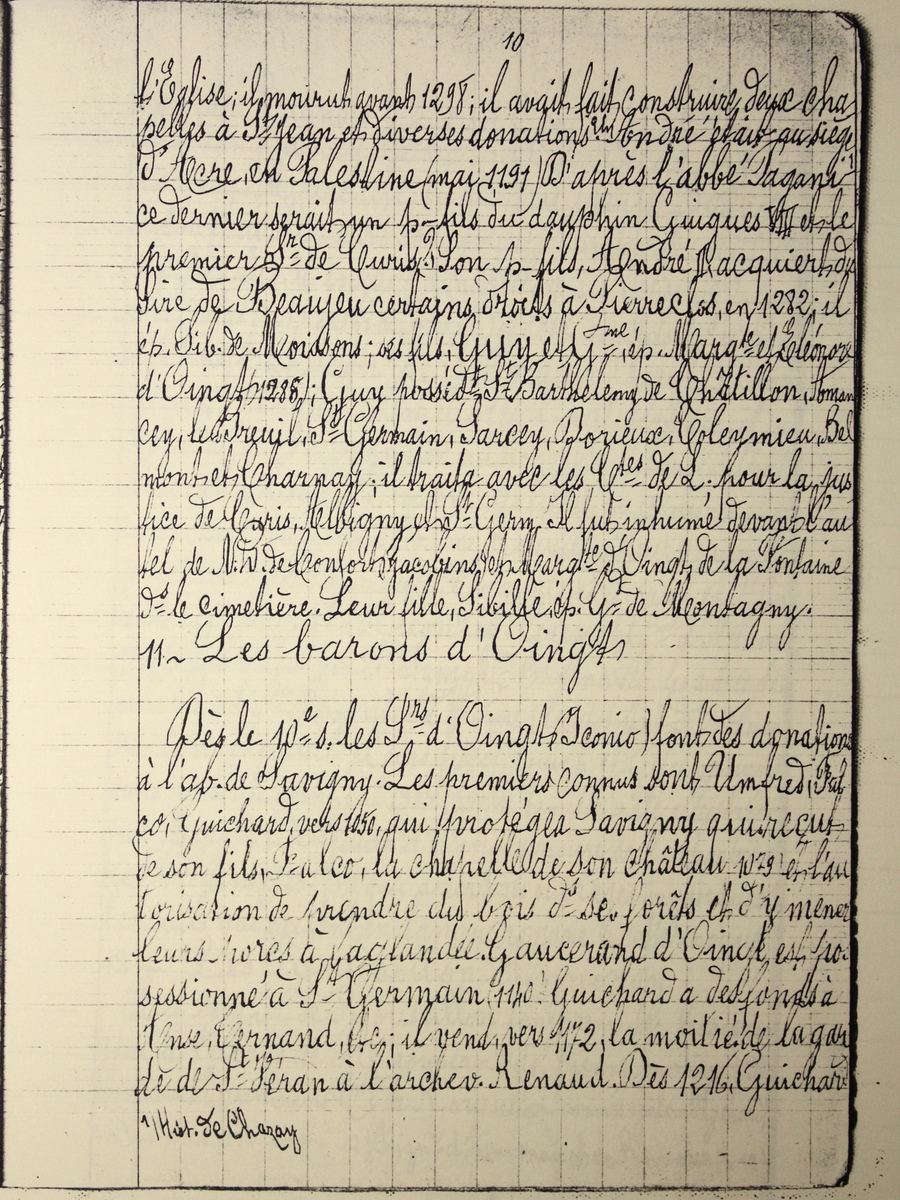 10
l'Eglise; il mourut avant 1298; il avait fait construire deux cha
pelles à St Jean et diverses donations. Un André était au siège
d'Acre, en Palestine (mai 1191) D'après l'abbé Pagani
ce dernier serait un p-fils du dauphin Guigues VIII et le
premier Sr de Curis. Son p-fils, André acquiert du
sire de Beaujeu certains droits à Pierreclos, en 1282; il
ép. Sib. de Moissons; ses fils, Guy et Gme, ép. Margte et Eléonore
d'Oingt (1288); Guy possédt St Barthélemy de Châtillon,
cey, le Breuil, St Germain, Sarcey, Dorieux, Coleymieu, Bel
mont et Charnay; il traita avec les Ctes de L. pour la jus
tice de Curis, Albigny et St Germ. Il fut inhumé devant l'au
tel de N.D. de Confort (jacobins) et Margte d'Oingt, de la Fontaine
ds le cimetière. Leur fille, Sibille, ép. G. de Montagny.
11 ~ Les barons d'Oingt
Dès le 10e s. les Srs d'Oingt (Iconio) font des donations
à l'ab. de Savigny. Les premiers connus sont Umfred, Fal
co, Guichard, vers 1050, qui protégea Savigny qui reçut
de son fils, Falco, la chapelle de son château 1093 et l'au
torisation de prendre du bois ds ses forêts et d'y mener
leurs porcs à la glandée. Gaucerand d'Oingt est pos
sessionné à St Germain (1140. Guichard a des fonds à
Anse, Cernand, etc; il vend, vers 1172, la moitié de la gar
de de St à l'archev. Renaud. Dès 1216, Guichard
1/ Hist. de Chazay